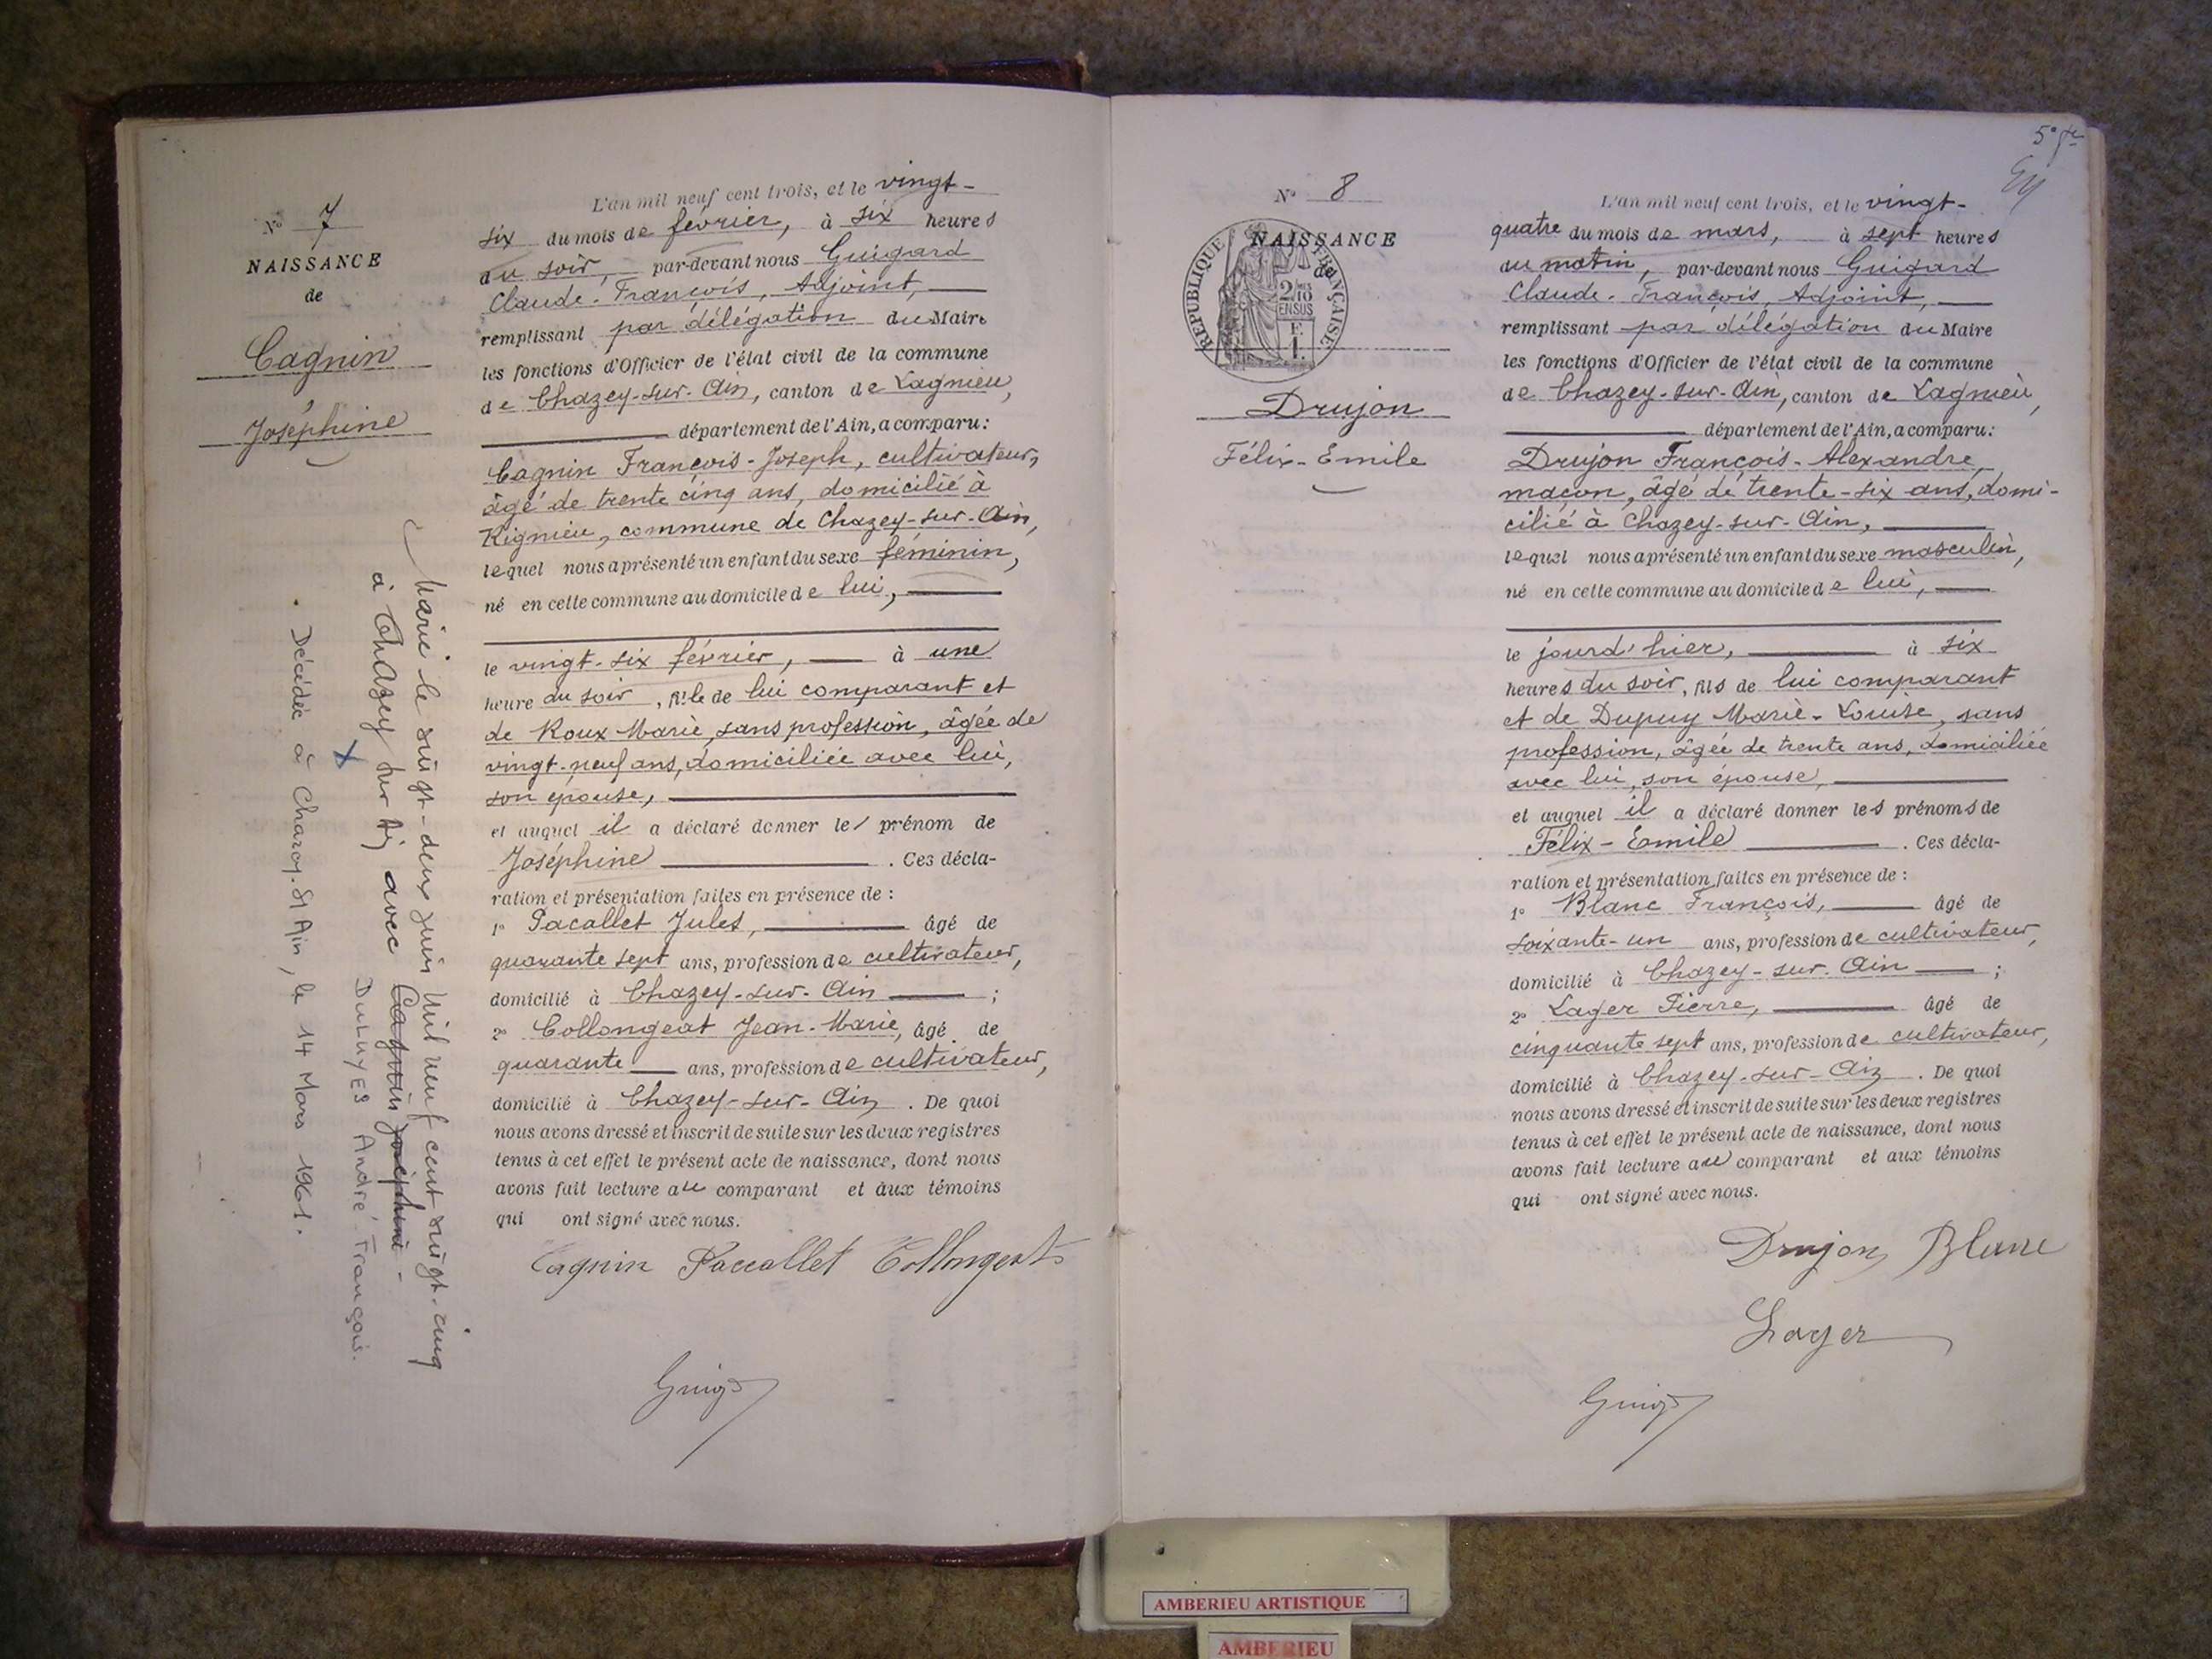 N° 7
NAISSANCE
de
Cagnin
Joséphine
L'an mil neuf cent trois, et le vingt-
six du mois de février, à six heures
du soir, par-devant nous Guigard
Claude-François, Adjoint,
remplissant par délégation du Maire
les fonctions d'Officier de l'état civil de la commune
de Chazey-sur-Ain, canton de Lagnieu,
département de l'Ain, a comparu:
Cagnin François-Joseph, cultivateur,
âgé de trente cinq ans, domicilié à
Rignieu, commune de Chazey-sur-Ain,
lequel nous a présenté un enfant du sexe féminin,
né en cette commune au domicile de lui,
le vingt-six février, à une
heure du soir, fille de lui comparant et
de Roux Marie, sans profession, âgée de
vingt-neuf ans, domiciliée avec lui,
son épouse,
et auquel il a déclaré donner le prénom de
Joséphine. Ces décla-
ration et présentation faites en présence de :
1° Pacallet Jules, âgé de
quarante sept ans, profession de cultivateur,
domicilié à Chazey-sur-Ain ;
2° Collongeat Jean-Marie, âgé de
quarante ans, profession de cultivateur,
domicilié à Chazey-sur-Ain. De quoi
nous avons dressé et inscrit de suite sur les deux registres
tenus à cet effet le présent acte de naissance, dont nous
avons fait lecture au comparant et aux témoins
qui ont signé avec nous.
Cagnin Paccallet Collongeat
Marié le vingt-deux juin mil neuf cent vingt-cinq
à Chazey sur Ain avec Cagnin Joséphine -
DULUYES André François.
Décédée à Charoy-S/Ain, le 14 Mars 1961.
5e
N° 8
NAISSANCE
de
RÉPUBLIQUE FRANÇAISE
2/10
EN SUS
Drujon
Félix-Emile
L'an mil neuf cent trois, et le vingt-
quatre du mois de mars, à sept heures
du matin, par-devant nous Guigard
Claude-François, Adjoint,
remplissant par délégation du Maire
les fonctions d'Officier de l'état civil de la commune
de Chazey-sur-Ain, canton de Lagnieu,
département de l'Ain, a comparu:
Drujon François-Alexandre
maçon, âgé de trente-six ans, domi-
cilié à Chazey-sur-Ain,
lequel nous a présenté un enfant du sexe masculin,
né en cette commune au domicile de lui,
le jourd'hier, à six
heures du soir, fils de lui comparant
et de Dupuy Marie-Louise, sans
profession, âgée de trente ans, domiciliée
avec lui, son épouse,
et auquel il a déclaré donner les prénoms de
Félix-Emile. Ces décla-
ration et présentation faites en présence de :
1° Blanc François, âgé de
soixante-un ans, profession de cultivateur,
domicilié à Chazey-sur-Ain ;
2° Lager Pierre, âgé de
cinquante sept ans, profession de cultivateur,
domicilié à Chazey-sur-Ain. De quoi
nous avons dressé et inscrit de suite sur les deux registres
tenus à cet effet le présent acte de naissance, dont nous
avons fait lecture au comparant et aux témoins
qui ont signé avec nous.
Drujon Blanc
Lager
AMBERIEU ARTISTIQUE
AMBERIEU